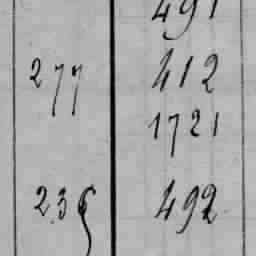 491
277 412
1721
236 492